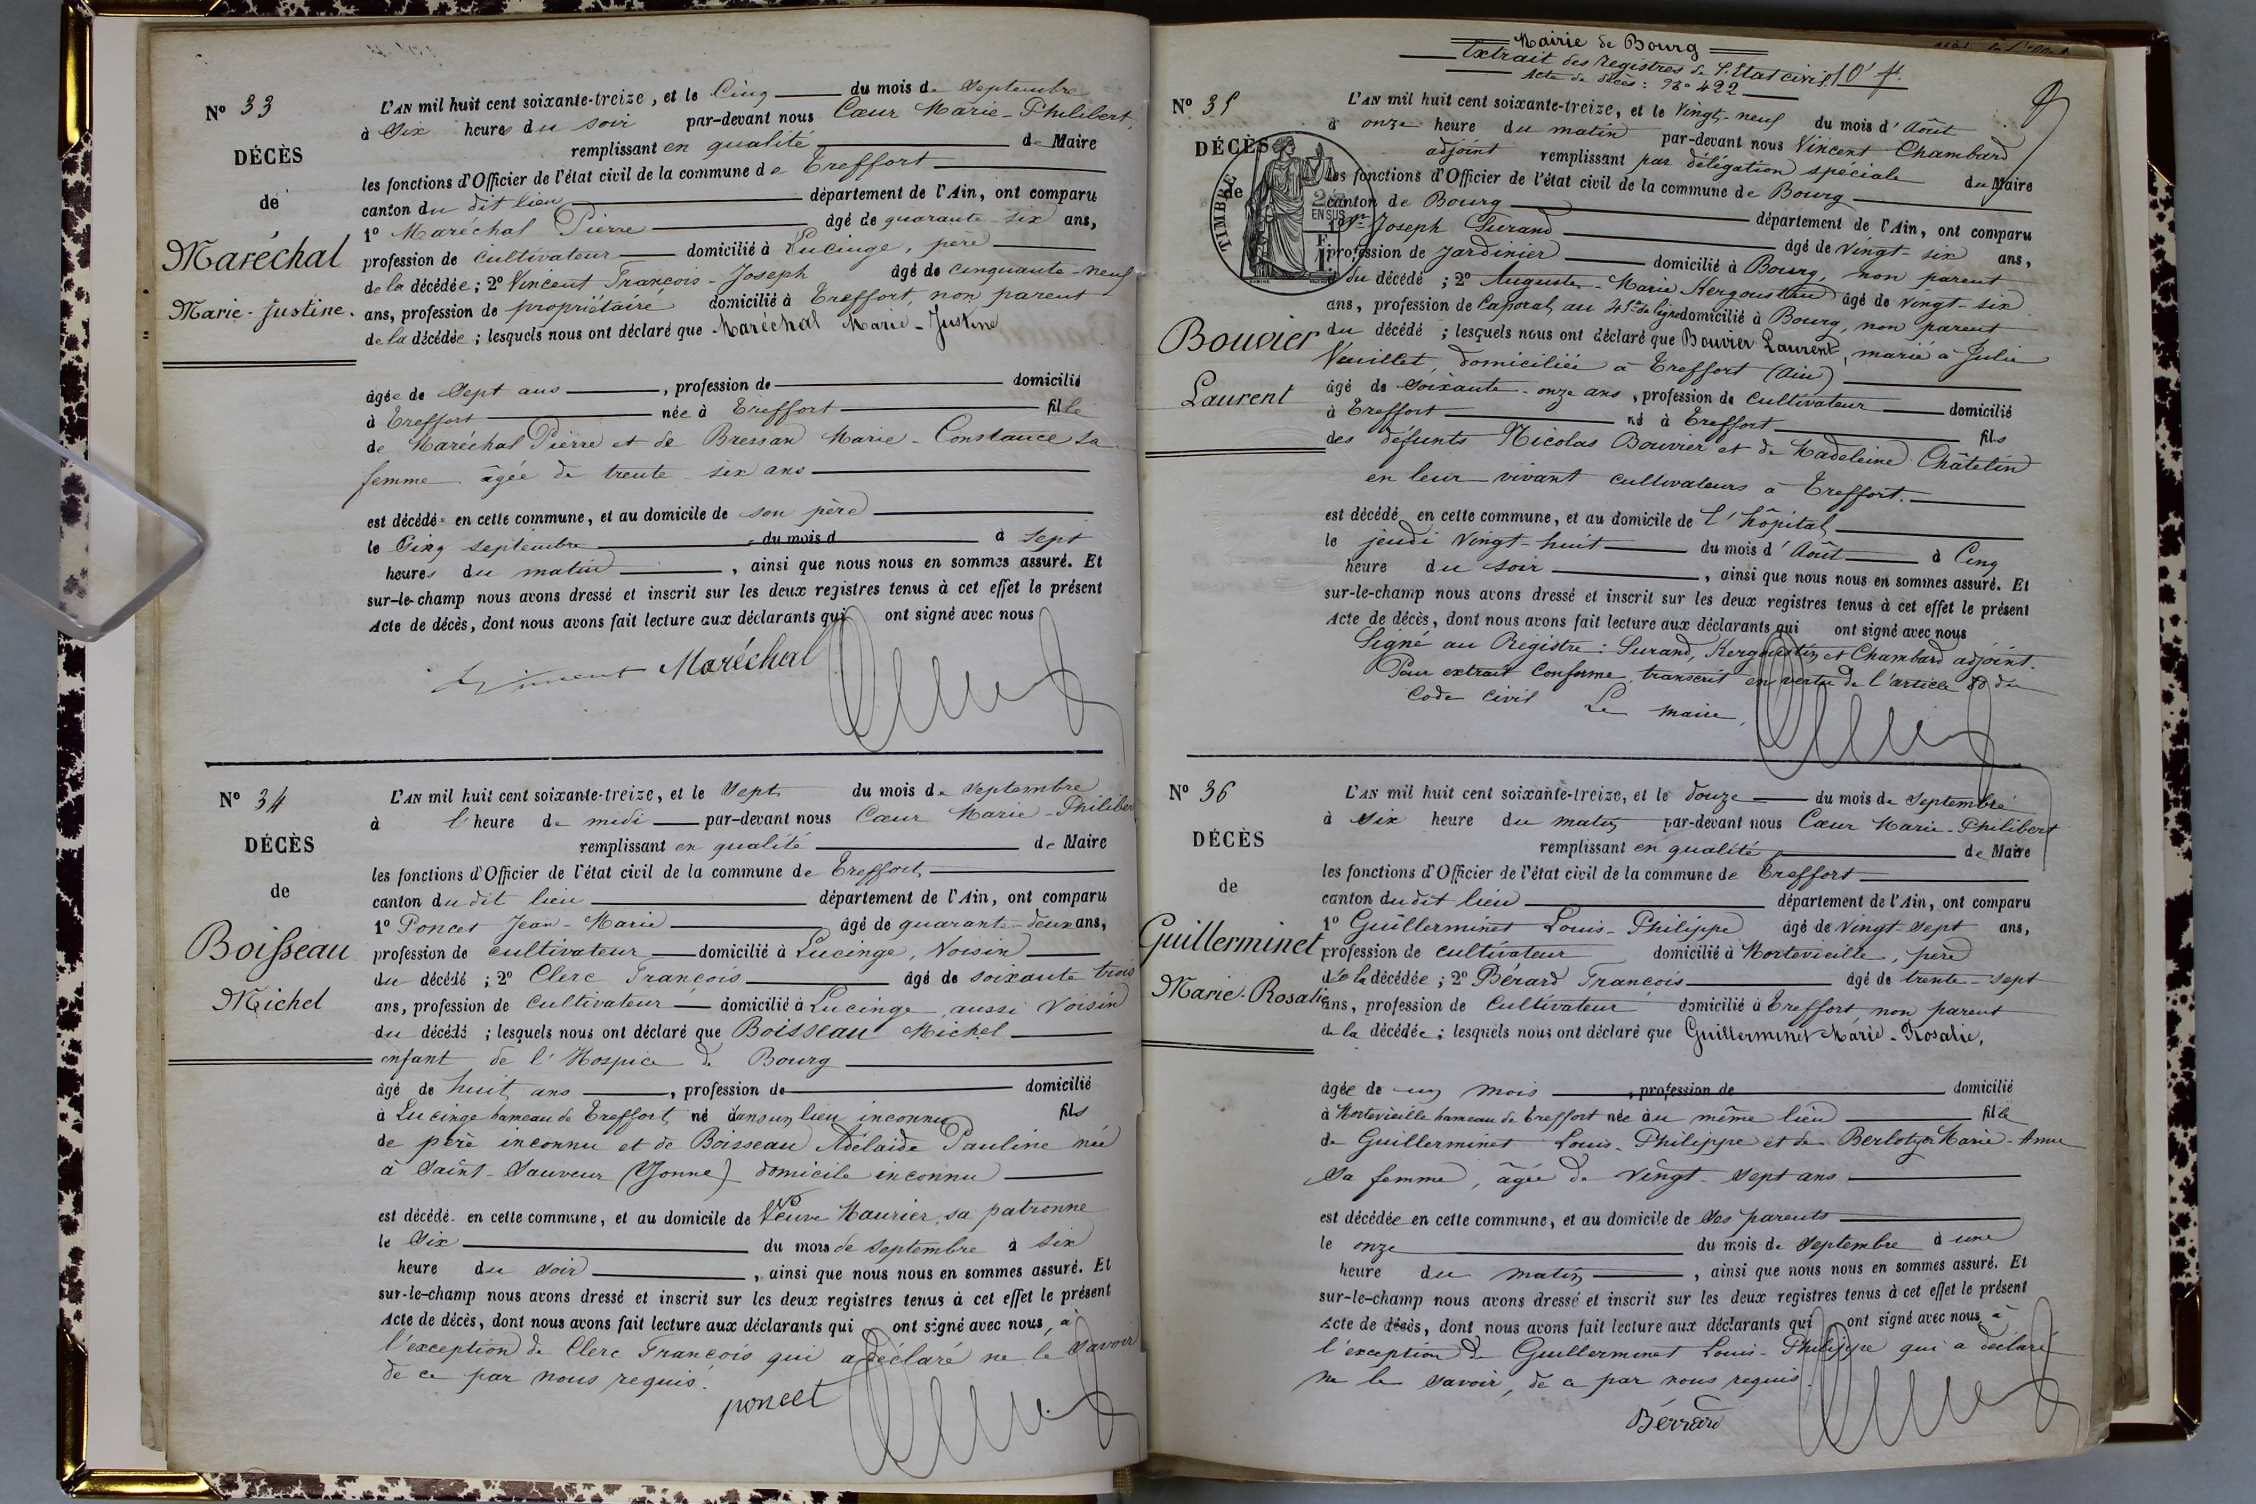 N° 33
DÉCÈS
de
Maréchal
Marie-Justine.
L'AN mil huit cent soixante-treize, et le Cinq du mois de Septembre
à Six heures du soir par-devant nous Cœur Marie-Philibert,
remplissant en qualité de Maire
les fonctions d'Officier de l'état civil de la commune de Treffort
canton du dit lieu département de l'Ain, ont comparu
1° Maréchal Pierre âgé de quarante-six ans,
profession de cultivateur domicilié à Lucinge, père
de la décédée; 2° Vincent François-Joseph âgé de cinquante-neuf
ans, profession de propriétaire domicilié à Treffort, non parent
de la décédée; lesquels nous ont déclaré que Maréchal Marie-Justine
âgée de Sept ans, profession de domicilié
à Treffort née à Treffort fille
de Maréchal Pierre et de Bressan Marie-Constance sa
femme âgée de trente-six ans
est décédée en cette commune, et au domicile de son père
le Cinq septembre du mois d à Sept
heures du matin, ainsi que nous nous en sommes assuré. Et
sur-le-champ nous avons dressé et inscrit sur les deux registres tenus à cet effet le présent
Acte de décès, dont nous avons fait lecture aux déclarants qui ont signé avec nous
Vincent Maréchal
N° 34
DÉCÈS
de
Boisseau
Michel
L'AN mil huit cent soixante-treize, et le Sept du mois de Septembre
à l'heure de midi par-devant nous Cœur Marie-Philibert
remplissant en qualité de Maire
les fonctions d'Officier de l'état civil de la commune de Treffort
canton du dit lieu département de l'Ain, ont comparu
1° Poncet Jean-Marie âgé de quarante-deux ans,
profession de cultivateur domicilié à Lucinge, Voisin
du décédé; 2° Clerc François âgé de soixante trois
ans, profession de cultivateur domicilié à Lucinge aussi Voisin
du décédé; lesquels nous ont déclaré que Boisseau Michel
enfant de l'Hospice de Bourg
âgé de huit ans, profession de domicilié
à Lucinge hameau de Treffort né dans un lieu inconnu fils
de père inconnu et de Boisseau Adélaïde Pauline née
à Saint-Sauveur (Yonne) domicile inconnu
est décédé en cette commune, et au domicile de Veuve Maurier, sa patronne
le Six du mois de Septembre à six
heure du soir, ainsi que nous nous en sommes assuré. Et
sur-le-champ nous avons dressé et inscrit sur les deux registres tenus à cet effet le présent
Acte de décès, dont nous avons fait lecture aux déclarants qui ont signé avec nous, à
l'exception de Clerc François qui a déclaré ne le savoir
de ce par nous requis.
poncet
Mairie de Bourg
Extrait des Registres de l'Etat civil
Acte de décès: N° 422
N° 35
DÉCÈS
de
Bouvier
Laurent
TIMBRE
2
EN SUS
L'AN mil huit cent soixante-treize, et le Vingt-neuf du mois d'Août
à onze heure du matin par-devant nous Vincent Chambard
adjoint remplissant par délégation spéciale du Maire
les fonctions d'Officier de l'état civil de la commune de Bourg
canton de Bourg département de l'Ain, ont comparu
1° Joseph Surand âgé de Vingt-six ans,
profession de Jardinier domicilié à Bourg, non parent
du décédé; 2° Auguste-Marie Kergoustin âgé de Vingt-six
ans, profession de Caporal au de ligne domicilié à Bourg, non parent
du décédé; lesquels nous ont déclaré que Bouvier Laurent, marié à Julie
Vuillet, domiciliée à Treffort (Ain)
âgé de soixante-onze ans, profession de Cultivateur domicilié
à Treffort né à Treffort fils
des défunts Nicolas Bouvier et de Madeleine Châtelin
en leur vivant cultivateurs à Treffort.
est décédé en cette commune, et au domicile de l'hôpital
le jeudi Vingt-huit du mois d'Août à Cinq
heure du soir, ainsi que nous nous en sommes assuré. Et
sur-le-champ nous avons dressé et inscrit sur les deux registres tenus à cet effet le présent
Acte de décès, dont nous avons fait lecture aux déclarants qui ont signé avec nous
Signé au Registre: Surand, Kergoustin et Chambard adjoint.
Pour extrait conforme transcrit en vertu de l'article 80 du
Code civil Le maire,
N° 36
DÉCÈS
de
Guillerminet
Marie-Rosalie
L'AN mil huit cent soixante-treize, et le douze du mois de Septembre
à Six heure du matin par-devant nous Cœur Marie-Philibert
remplissant en qualité de Maire
les fonctions d'Officier de l'état civil de la commune de Treffort
canton du dit lieu département de l'Ain, ont comparu
1° Guillerminet Louis-Philippe âgé de Vingt-Sept ans,
profession de cultivateur domicilié à Mortevieille, père
de la décédée; 2° Bérard François âgé de trente-sept
ans, profession de Cultivateur domicilié à Treffort non parent
de la décédée; lesquels nous ont déclaré que Guillerminet Marie-Rosalie,
âgée de un mois, profession de domicilié
à Mortevieille hameau de Treffort née au même lieu fille
de Guillerminet Louis-Philippe et de Marie-Anne
Sa femme, âgée de Vingt-Sept ans
est décédée en cette commune, et au domicile de Ses parents
le onze du mois de Septembre à une
heure du matin, ainsi que nous nous en sommes assuré. Et
sur-le-champ nous avons dressé et inscrit sur les deux registres tenus à cet effet le présent
Acte de décès, dont nous avons fait lecture aux déclarants qui ont signé avec nous à
l'exception de Guillerminet Louis-Philippe qui a déclaré
ne le savoir, de ce par nous requis.
Bérrard